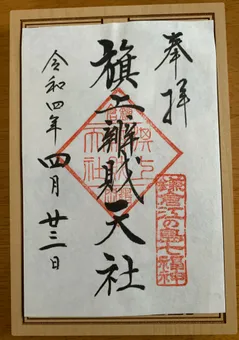 奉拝
鎌倉江の島七福神
旗上辨財天社
令和四年四月廿三日